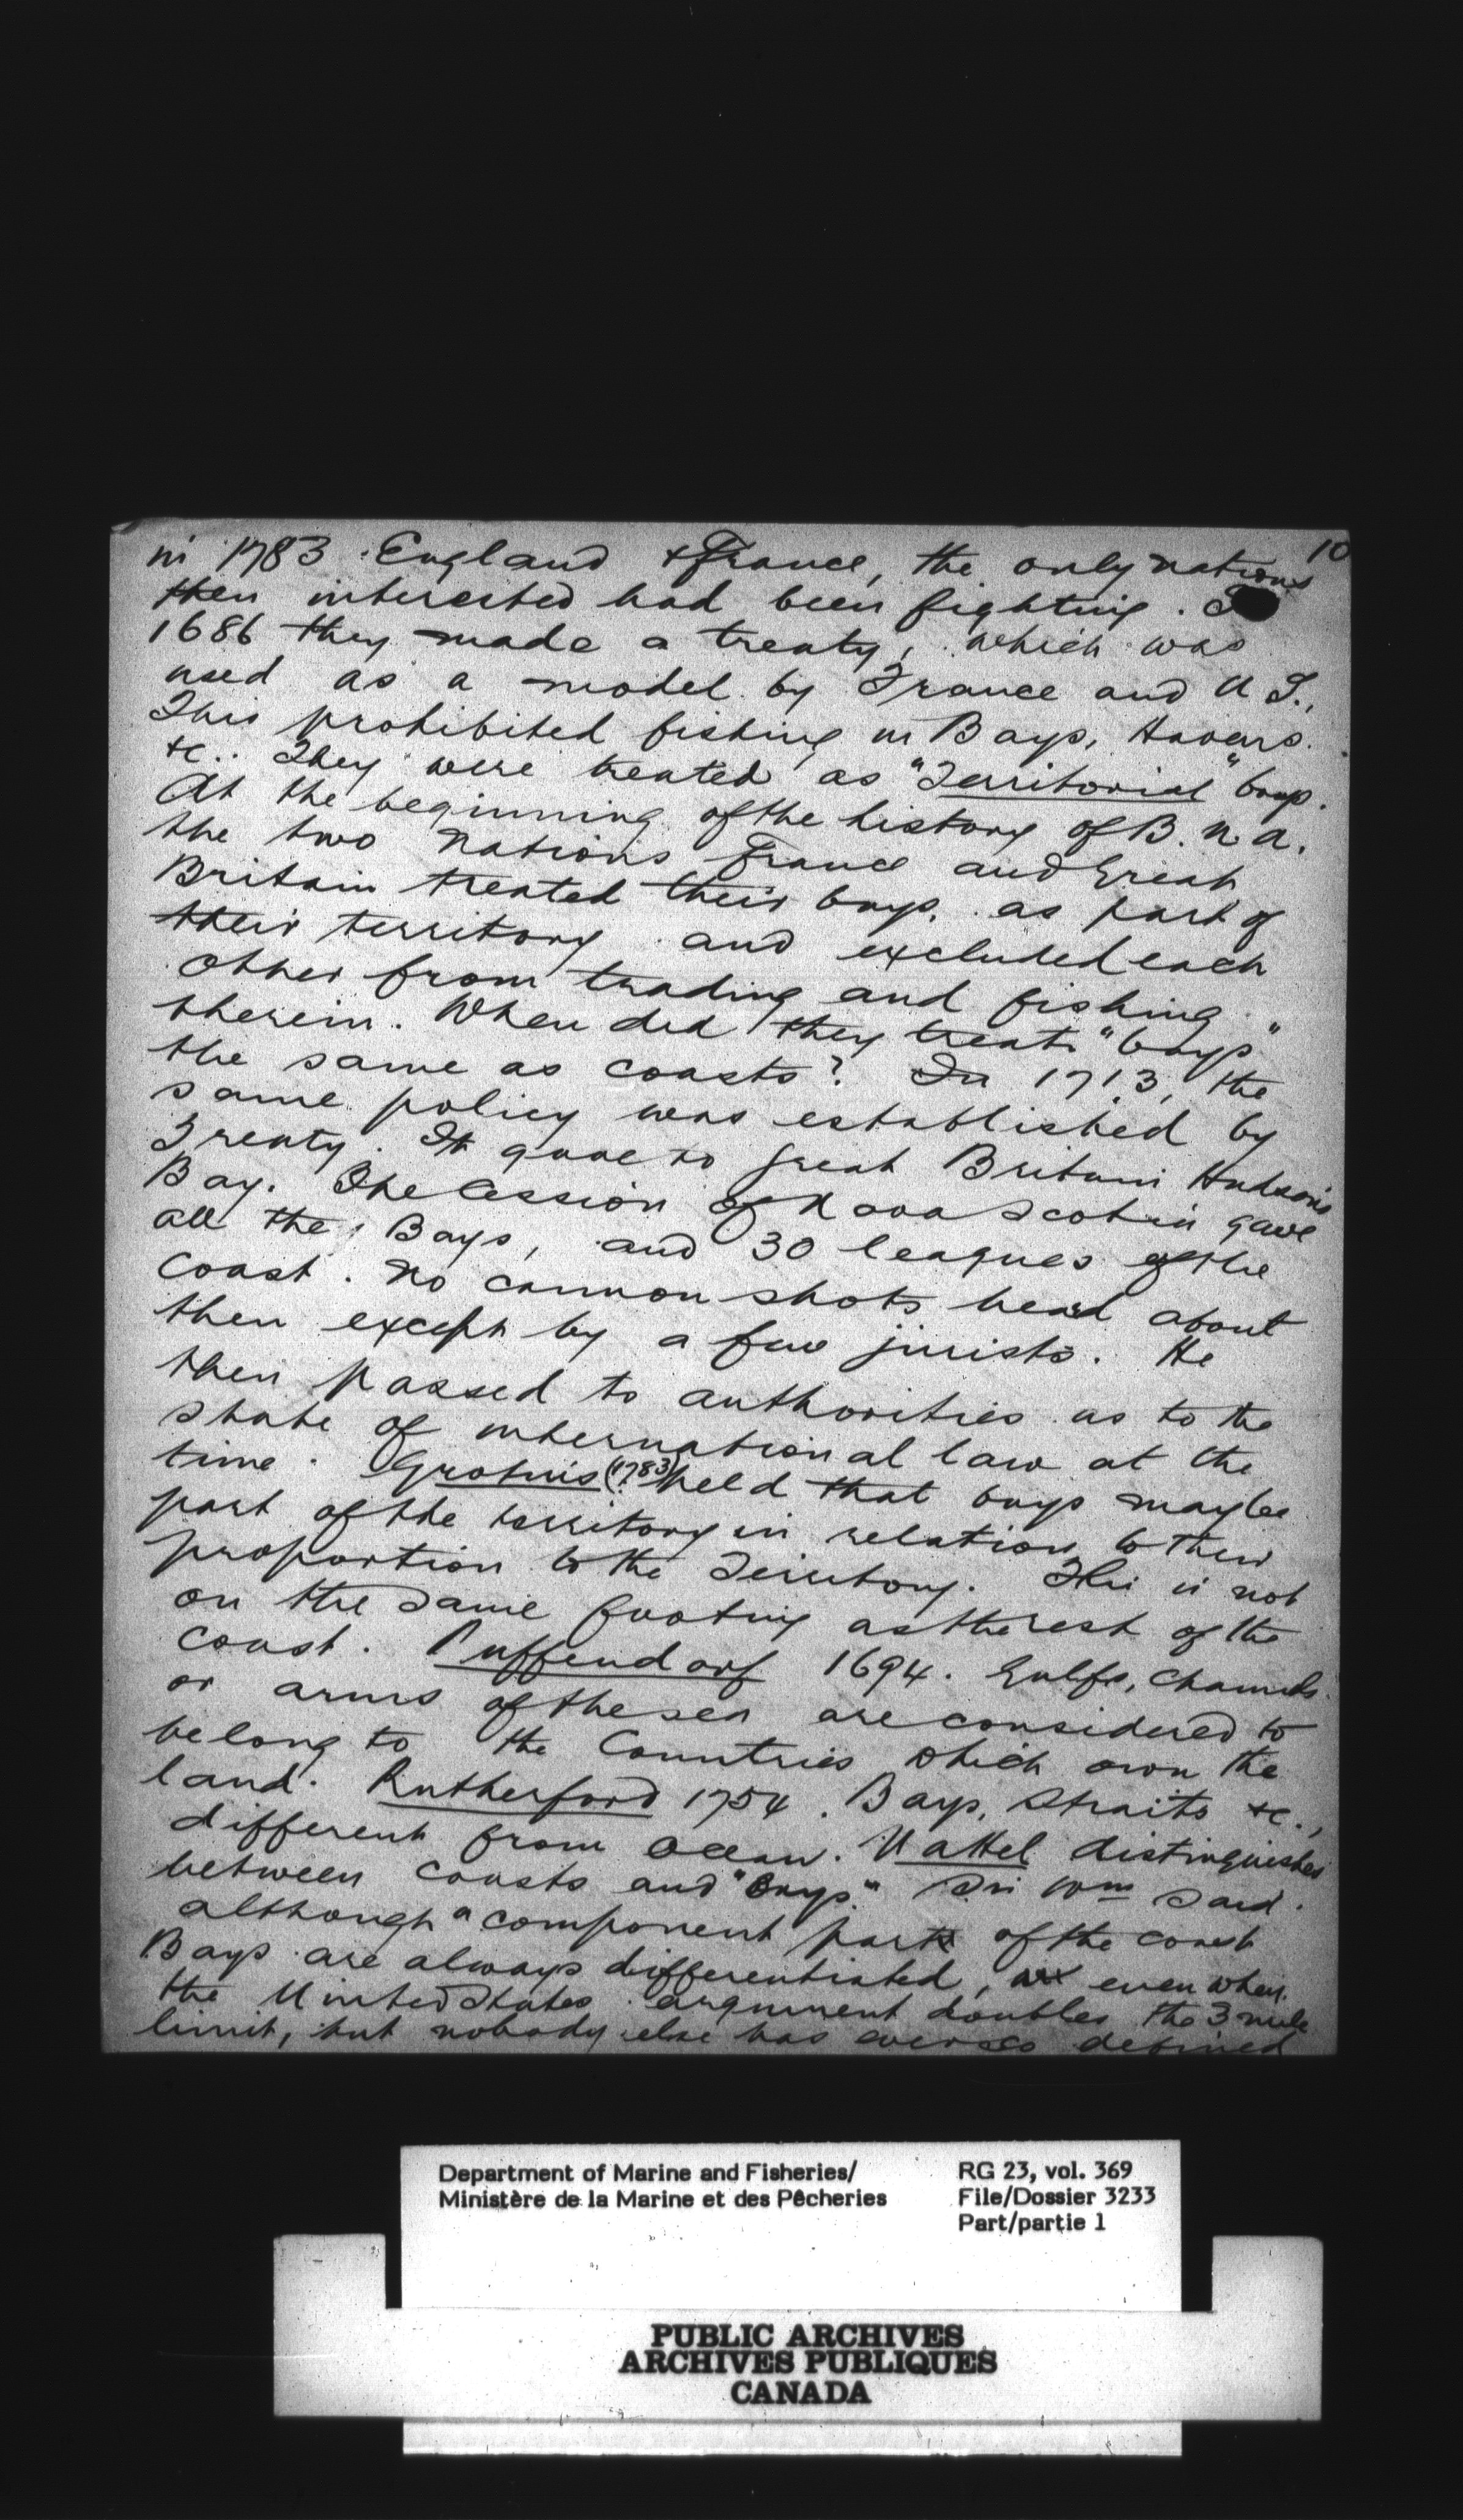 10
in 1783 England & France, the only nations
then interested had been fighting.
1686 they made a treaty, which was
used as a model by France and U S.,
This prohibited fishing in Bays, Havens.
&c.. They were treated as "Territorial" bays.
At the beginning of the history of B. N. A.
the two Nations France and Great
Britain treated their bays, as part of
their territory and excluded each
other from trading and fishing
therein. When did they treat "bays"
the same as coasts? In 1713, the
same policy was established by
Treaty. It gave to Great Britain Hudson's
Bay. The Cession of Nova Scotia gave
all the Bays, and 30 leagues of the
Coast. No cannon shots heard about
then except by a few jurists. He
then passed to authorities as to the
state of international law at the
time. Grotius (1783) held that bays may be
part of the territory in relation to their
proportion to the Territory. This is not
on the same footing as the rest of the
coast. Puffendorf 1694. Gulfs, channels
or arms of the sea are considered to
belong to the Countries which own the
land. Rutherford 1754. Bays, Straits &c.,
different from Ocean. Vattel distinguishes
between coasts and "bays." Sir Wm said.
although a component part of the coast
Bays are always differentiated, even when
the United States argument doubles the 3 mile
limit, but nobody else has ever so defined
Department of Marine and Fisheries/
Ministère de la Marine et des Pêcheries
RG 23, vol. 369
File/Dossier 3233
Part/partie 1
PUBLIC ARCHIVES
ARCHIVES PUBLIQUES
CANADA